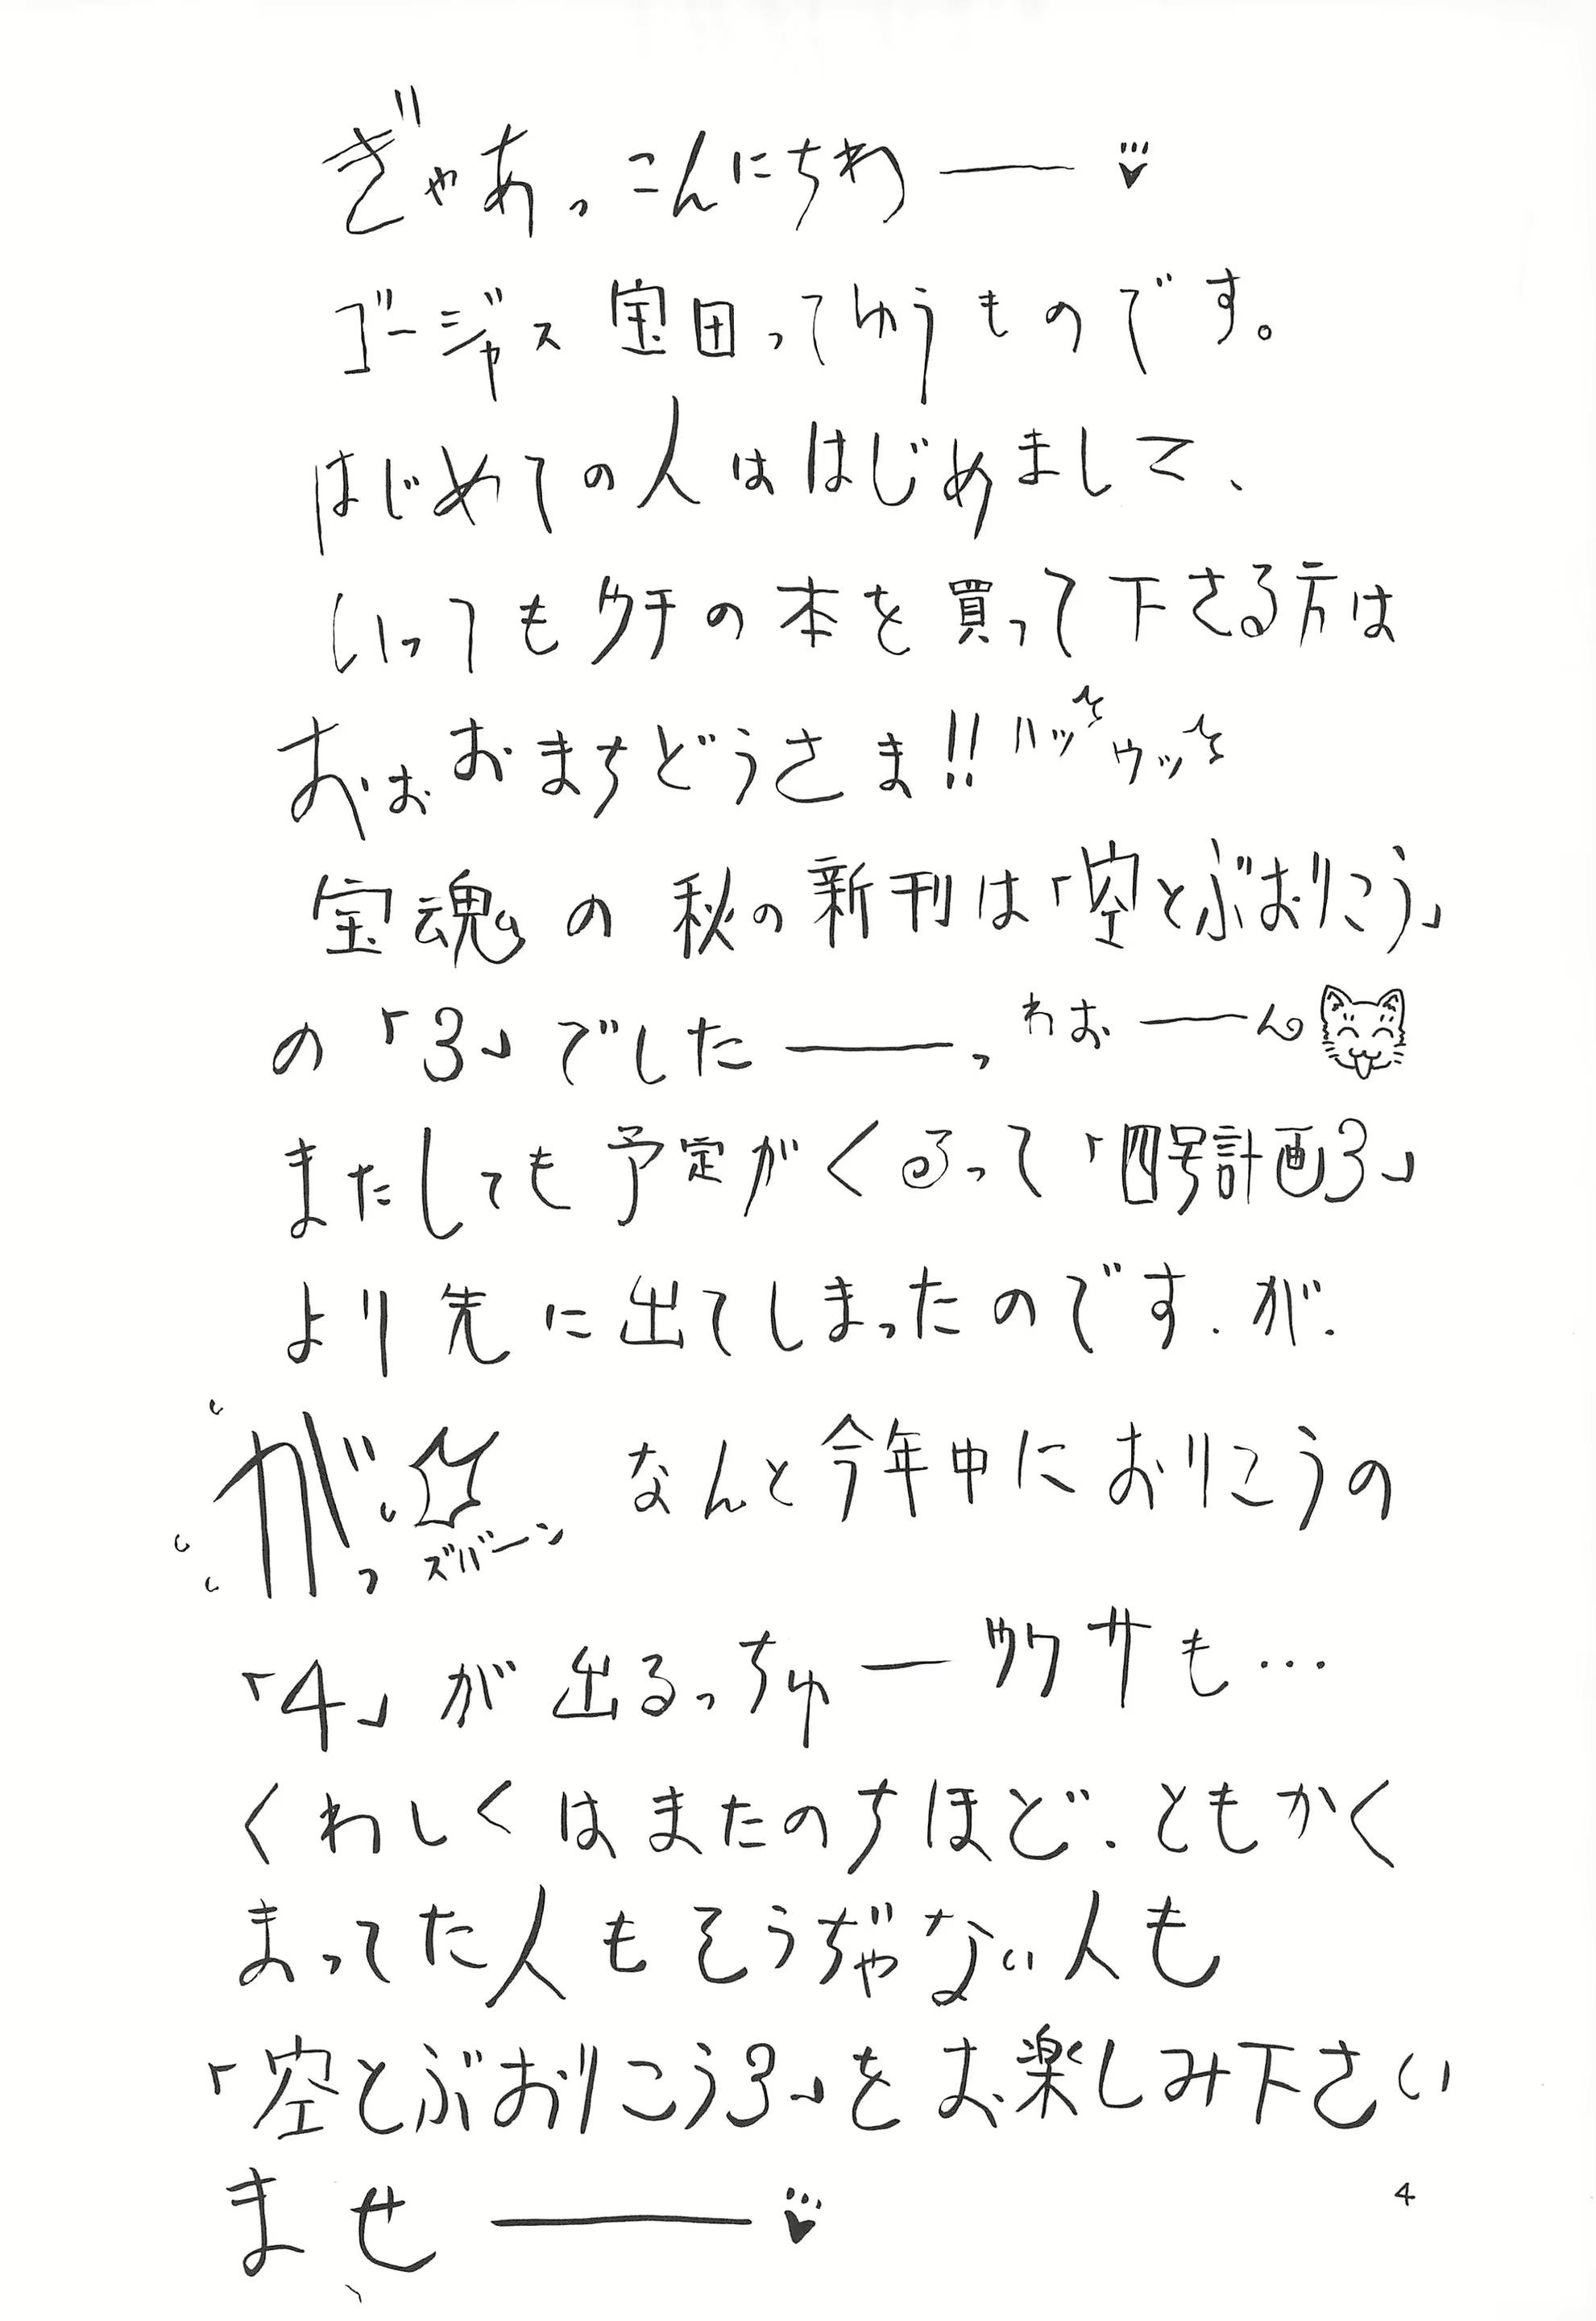 ぎゃあっこんにちわ――♥
ゴージャス宝田ってゆうものです。
はじめての人ははじめまして、
いっつもウチの本を買って下さる方は
おぉおまちどうさま!!ハッウッ
宝魂の秋の新刊は「空とぶおりこう」
の「3」でした――っわお――ん
またしても予定がくるって「四号計画3」
より先に出てしまったのです.が.
がっズバーン なんと今年中におりこうの
「4」が出るっちゅーウワサも…
くわしくはまたのちほど.ともかく
まってた人もそうぢゃない人も
「空とぶおりこう3」をお楽しみ下さい
ませ――♥
4